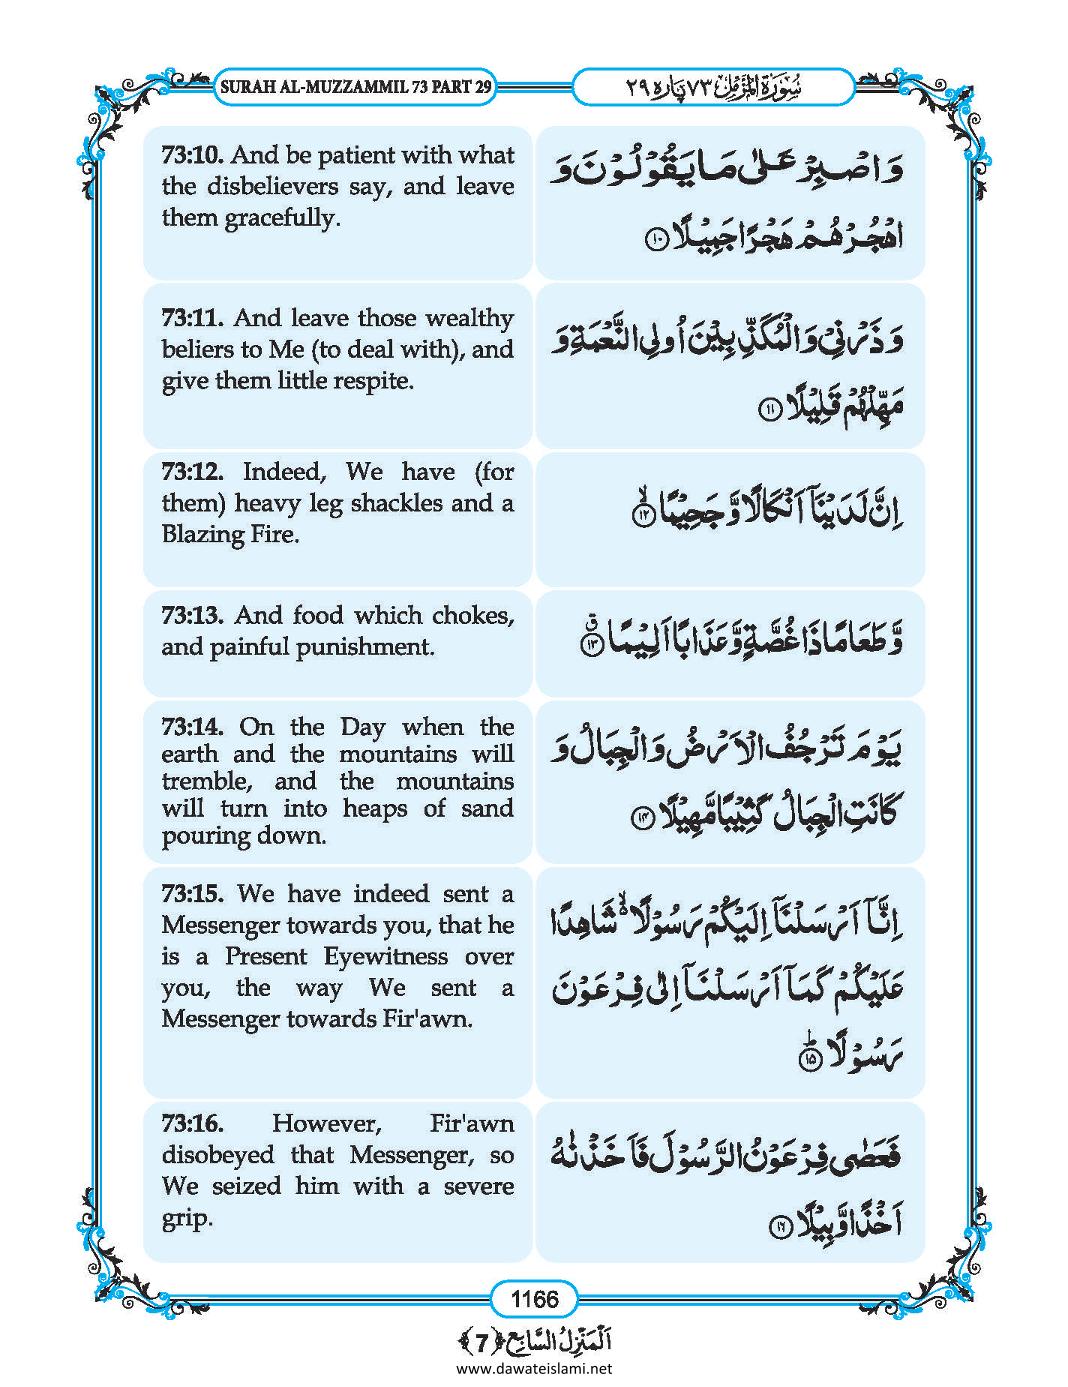 SURAH AL-MUZZAMMIL 73 PART 29
سُوْرَةُ الْمُزَّمِّل ٧٣ پارہ ٢٩
73:10. And be patient with what
the disbelievers say, and leave
them gracefully.
وَ اصْبِرْ عَلٰى مَا یَقُوْلُوْنَ وَ
اهْجُرْهُمْ هَجْرًا جَمِیْلًا ۝١٠
73:11. And leave those wealthy
beliers to Me (to deal with), and
give them little respite.
وَ ذَرْنِیْ وَ الْمُكَذِّبِیْنَ اُولِی النَّعْمَةِ وَ
مَهِّلْهُمْ قَلِیْلًا ۝١١
73:12. Indeed, We have (for
them) heavy leg shackles and a
Blazing Fire.
اِنَّ لَدَیْنَاۤ اَنْكَالًا وَّ جَحِیْمًاۙ ۝١٢
73:13. And food which chokes,
and painful punishment.
وَّ طَعَامًا ذَا غُصَّةٍ وَّ عَذَابًا اَلِیْمًاۗ ۝١٣
73:14. On the Day when the
earth and the mountains will
tremble, and the mountains
will turn into heaps of sand
pouring down.
یَوْمَ تَرْجُفُ الْاَرْضُ وَ الْجِبَالُ وَ
كَانَتِ الْجِبَالُ كَثِیْبًا مَّهِیْلًا ۝١٤
73:15. We have indeed sent a
Messenger towards you, that he
is a Present Eyewitness over
you, the way We sent a
Messenger towards Fir'awn.
اِنَّاۤ اَرْسَلْنَاۤ اِلَیْكُمْ رَسُوْلًا ۙ۬ شَاهِدًا
عَلَیْكُمْ كَمَاۤ اَرْسَلْنَاۤ اِلٰى فِرْعَوْنَ
رَسُوْلًاؕ ۝١٥
73:16. However, Fir'awn
disobeyed that Messenger, so
We seized him with a severe
grip.
فَعَصٰى فِرْعَوْنُ الرَّسُوْلَ فَاَخَذْنٰهُ
اَخْذًا وَّبِیْلًا ۝١٦
1166
اَلْمَنْزِلُ السَّابِع ﴿7﴾
www.dawateislami.net